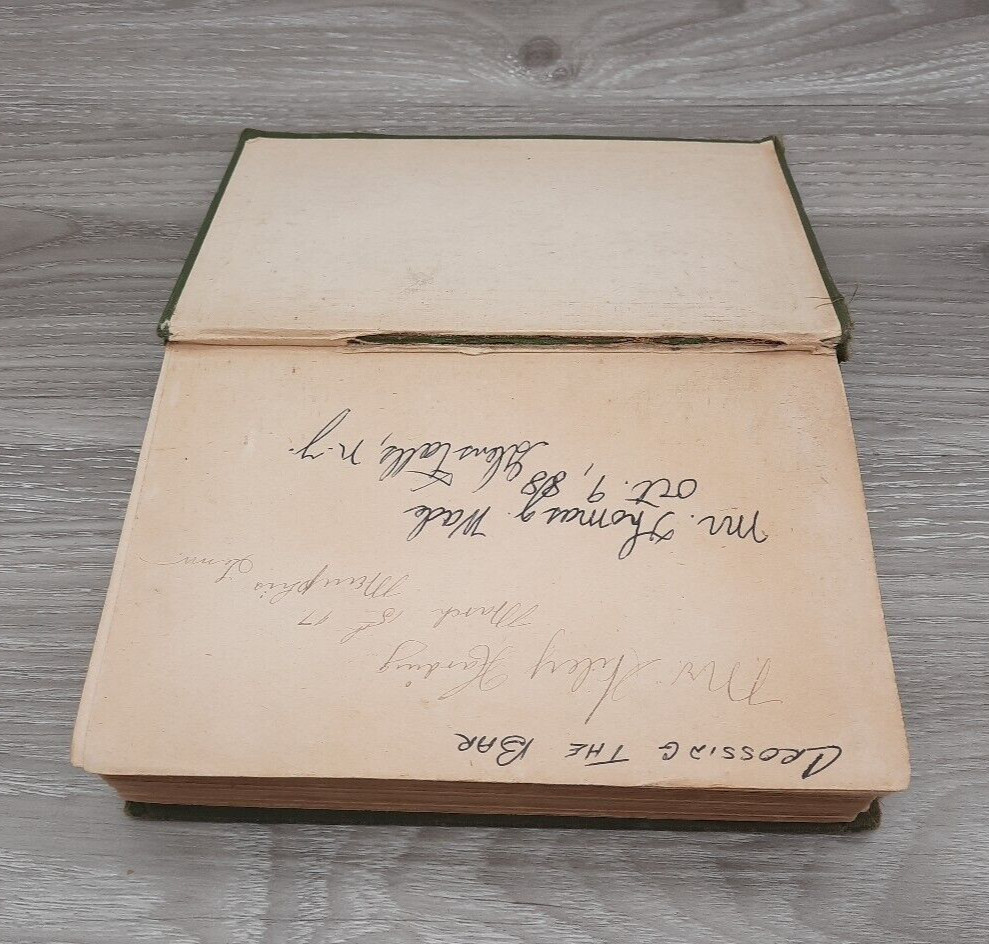 CROSSING THE BAR
Mr Wiley Harding
March 15th 97
Memphis Tenn
Mr. Thomas J. Wade
Oct. 9, 88
Glens Falls, N.Y.